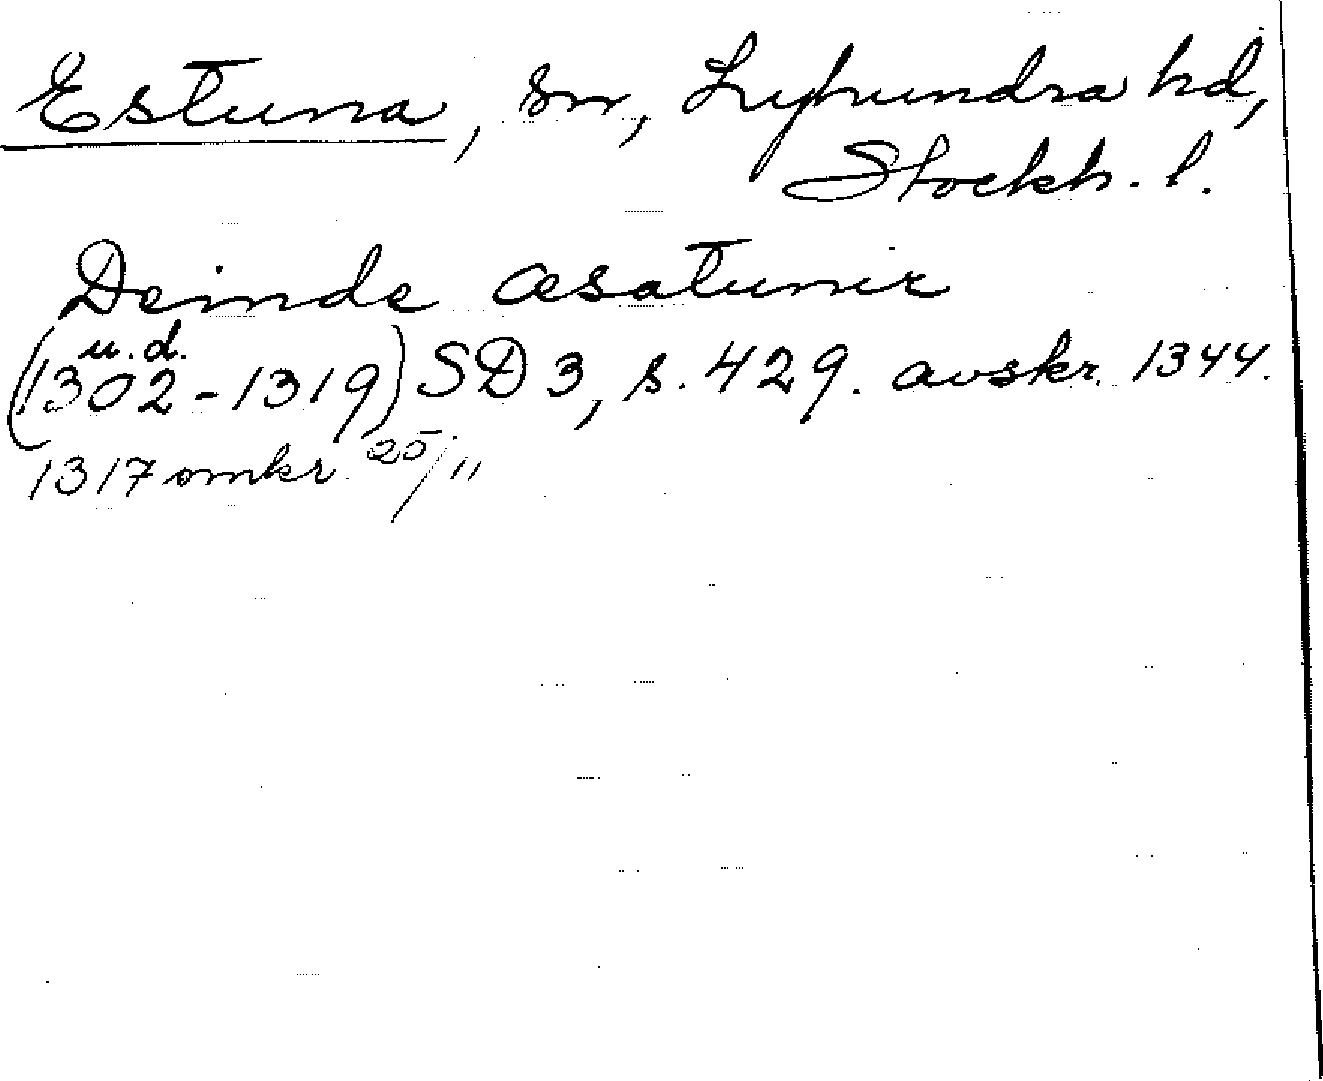 Estuna, sn, Lyhundra hd,
Stockh. l.
Deinde æsatunir
u.d.
(1302-1319) SD 3, s. 429. avskr. 1344.
1317 omkr. 25/11